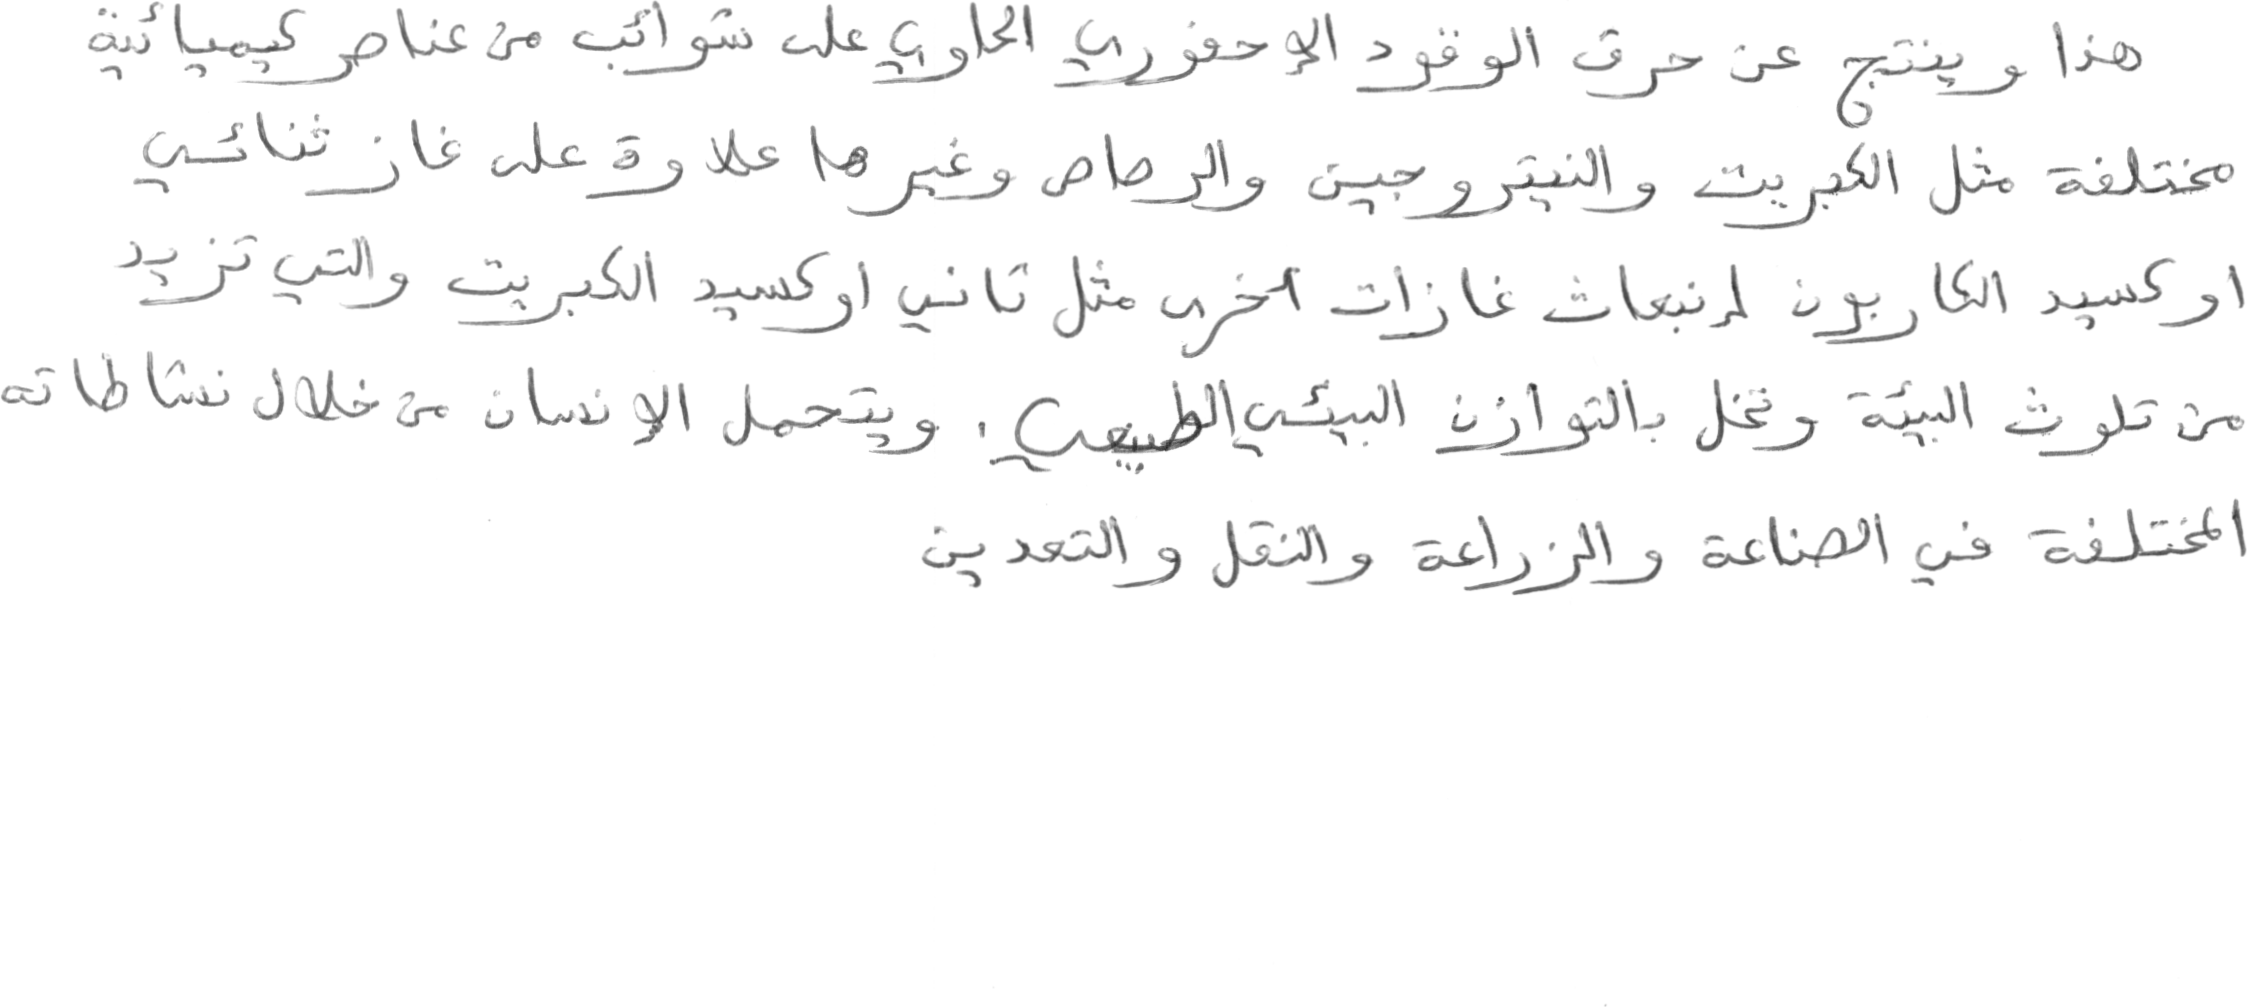 هذا وينتج عن حرق الوقود الإحفوري الحاوي على شوائب من عناصر كيميائية
مختلفة مثل الكبريت والنيتروجين والرصاص وغيرها علاوة على غاز ثنائي
اوكسيد الكاربون لإنبعاث غازات أخرى مثل ثاني اوكسيد الكبريت والتي تزيد
من تلوث البيئة وتخل بالتوازن البيئي الطبيعي. ويتحمل الإنسان من خلال نشاطاته
المختلفة في الصناعة والزراعة والنقل والتعدين